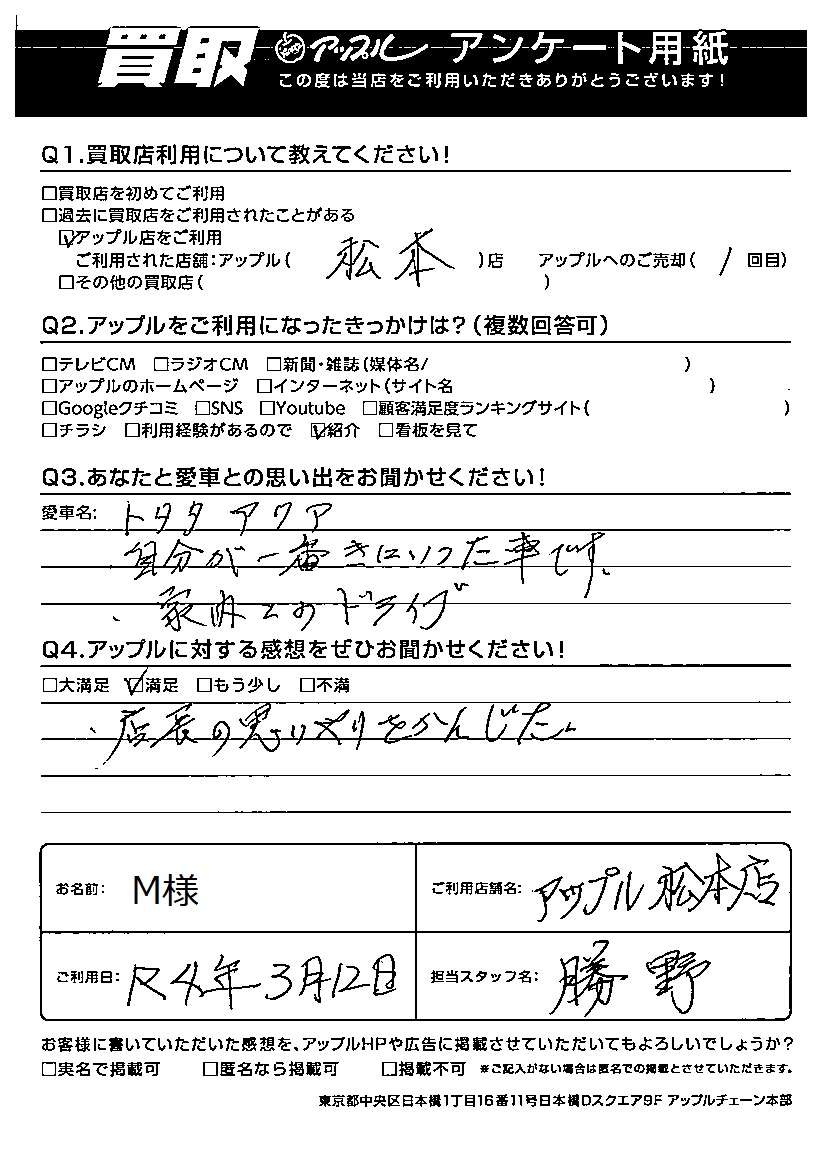 買取 アップル アンケート用紙
この度は当店をご利用いただきありがとうございます!
Q1.買取店利用について教えてください!
□買取店を初めてご利用
□過去に買取店をご利用されたことがある
☑アップル店をご利用
ご利用された店舗:アップル( 松本 )店 アップルへのご売却( 1 回目)
□その他の買取店( )
Q2.アップルをご利用になったきっかけは?(複数回答可)
□テレビCM □ラジオCM □新聞・雑誌(媒体名/ )
□アップルのホームページ □インターネット(サイト名 )
□Googleクチコミ □SNS □Youtube □顧客満足度ランキングサイト( )
□チラシ □利用経験があるので ☑紹介 □看板を見て
Q3.あなたと愛車との思い出をお聞かせください!
愛車名: トヨタ アクア
自分が一番きにいった車です。
、家内とのドライブ
Q4.アップルに対する感想をぜひお聞かせください!
□大満足 ☑満足 □もう少し □不満
、店長の思いやりをかんじた。
お名前: M様 ご利用店舗名: アップル松本店
ご利用日: R4年3月12日 担当スタッフ名: 勝野
お客様に書いていただいた感想を、アップルHPや広告に掲載させていただいてもよろしいでしょうか?
□実名で掲載可 □匿名なら掲載可 □掲載不可 ※ご記入がない場合は匿名での掲載とさせていただきます。
東京都中央区日本橋1丁目16番11号日本橋Dスクエア9F アップルチェーン本部